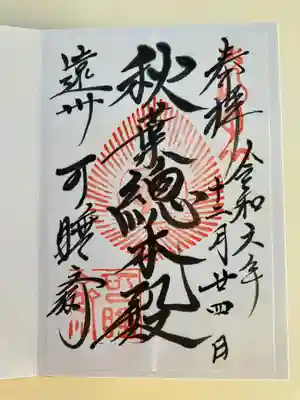 奉拝
令和六年
十二月廿四日
秋葉總本殿
遠州
可睡斎